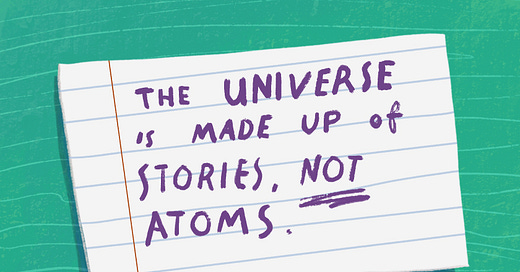 THE UNIVERSE
is MADE UP of
STORIES, NOT
ATOMS.